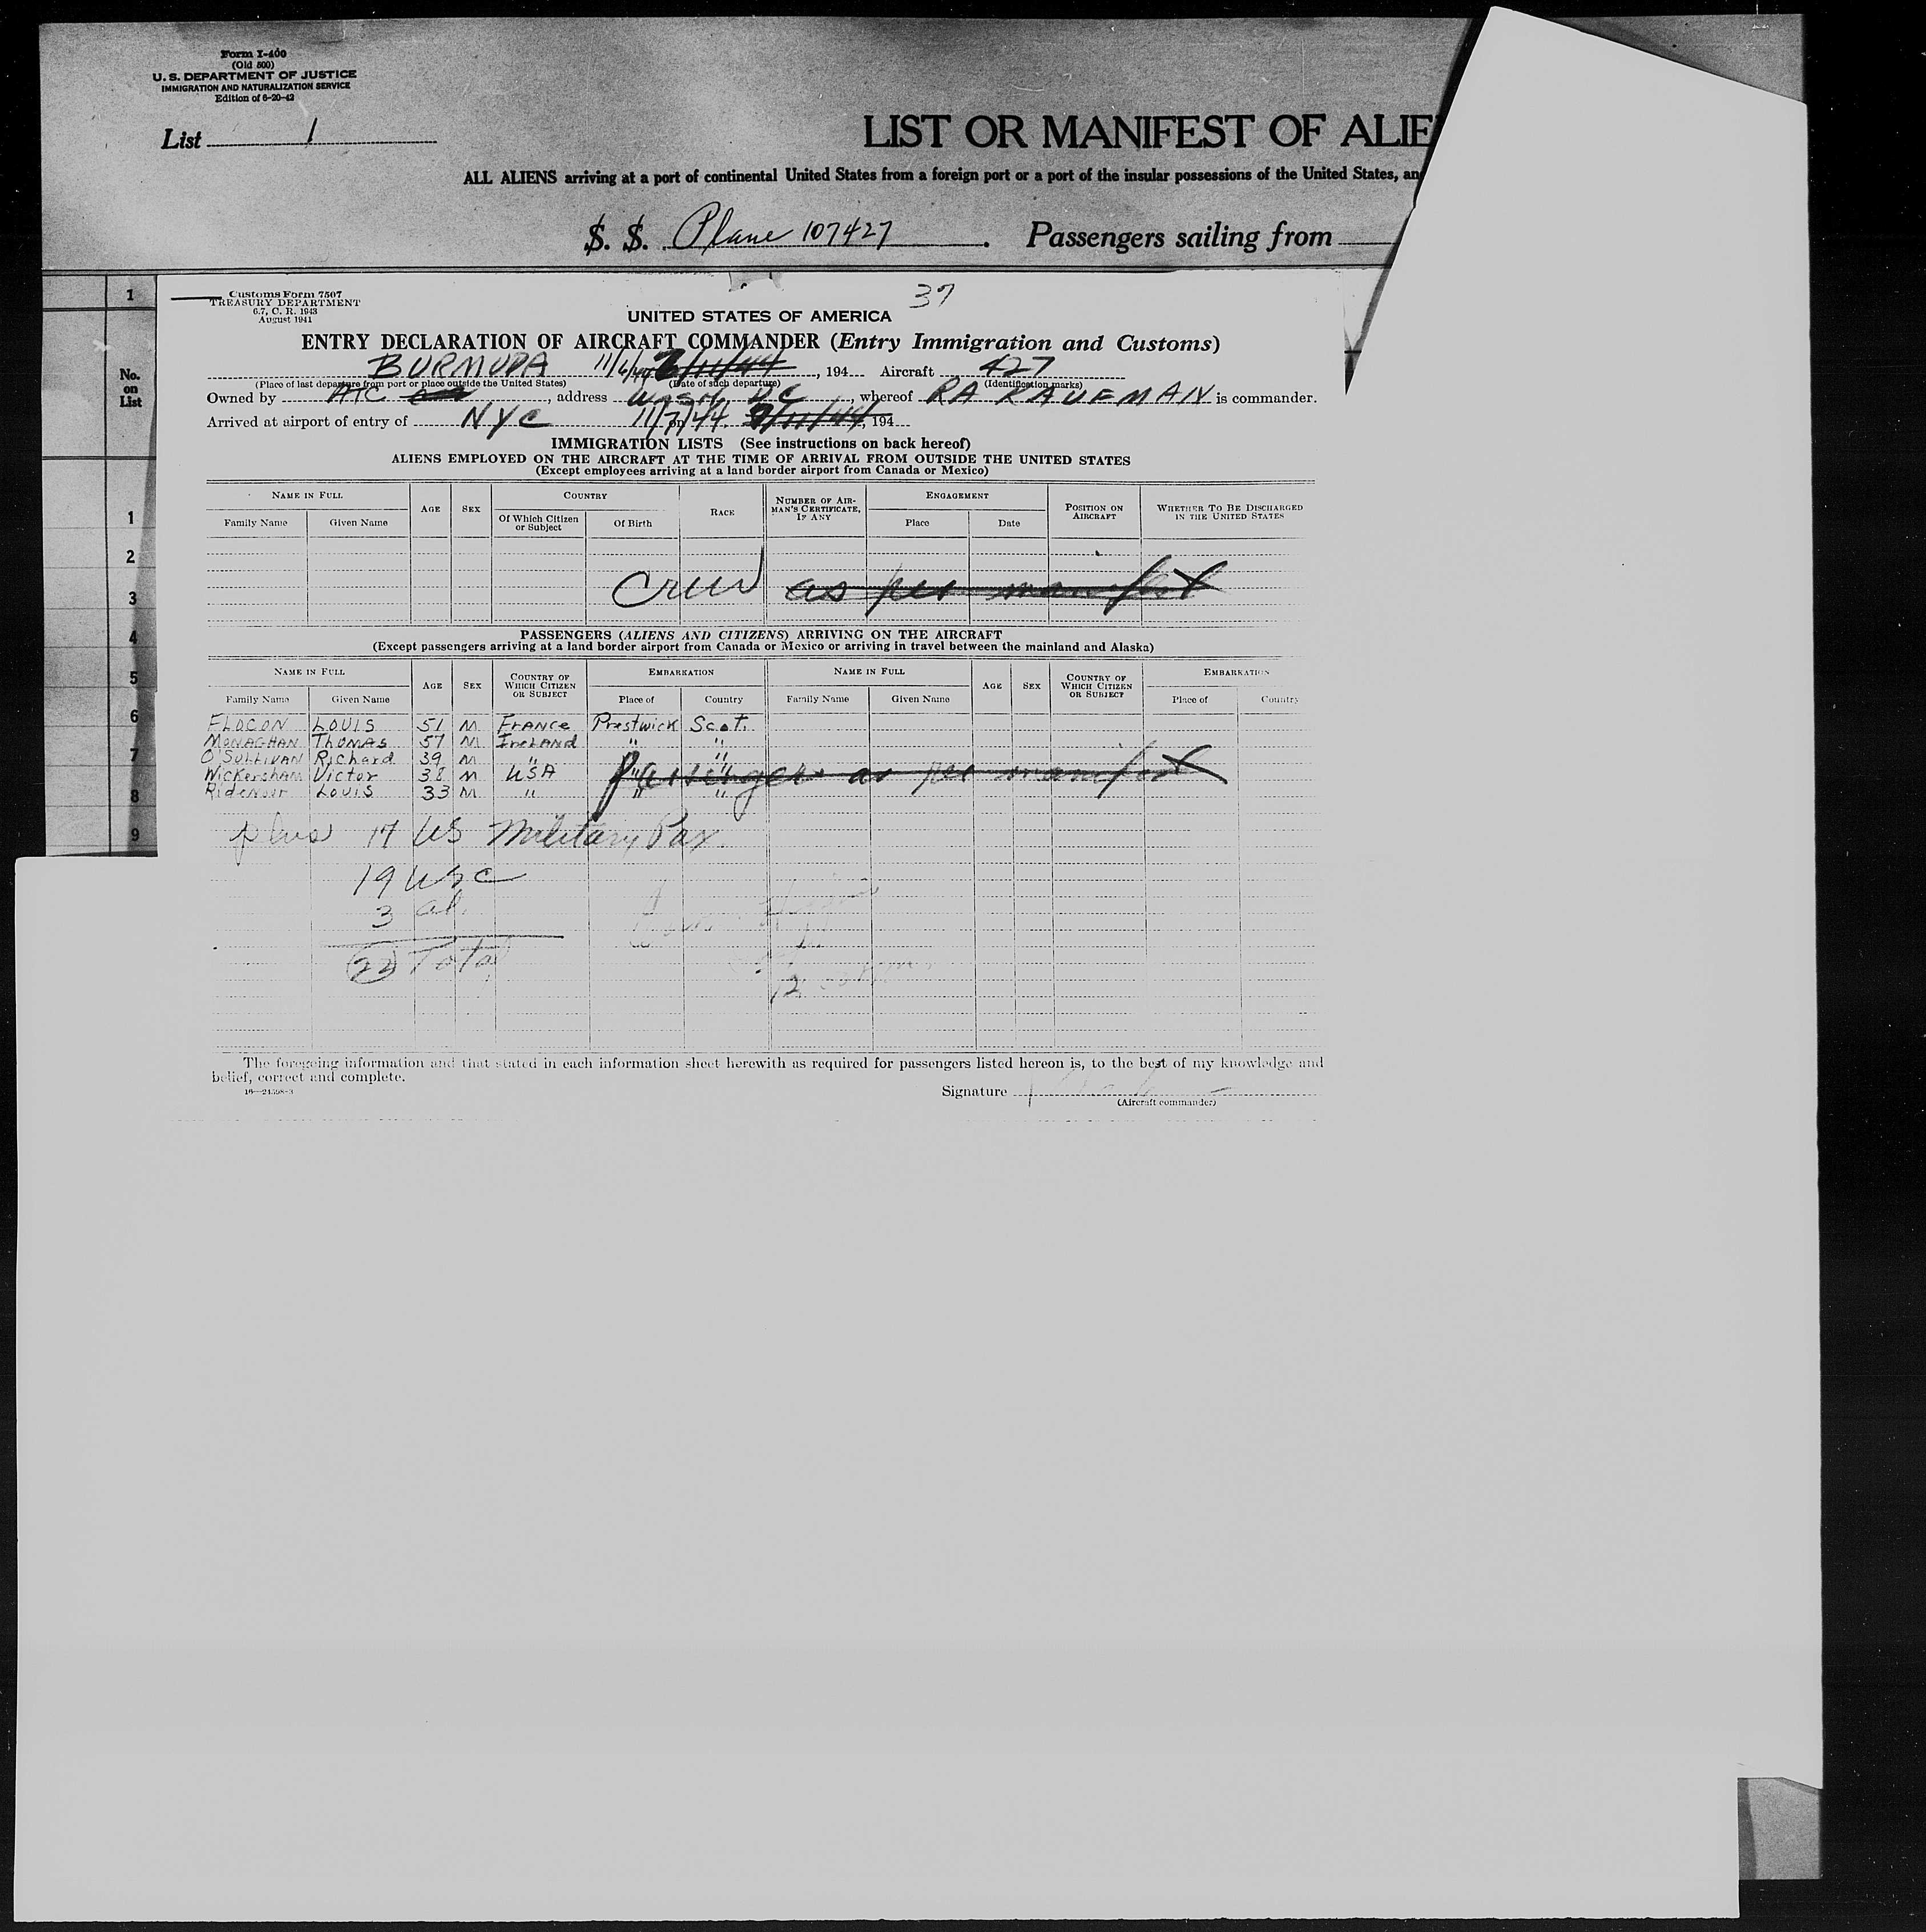 Form I-400
(Old 500)
U. S. DEPARTMENT OF JUSTICE
IMMIGRATION AND NATURALIZATION SERVICE
Edition of 6-20-42
List 1
LIST OR MANIFEST OF ALIE
ALL ALIENS arriving at a port of continental United States from a foreign port or a port of the insular possessions of the United States, an
S. S. Plane 107427 . Passengers sailing from
1
Customs Form 7507
TREASURY DEPARTMENT
6.7, C. R. 1943
August 1941
37
UNITED STATES OF AMERICA
ENTRY DECLARATION OF AIRCRAFT COMMANDER (Entry Immigration and Customs)
BURMUDA 11/6/44 , 194 Aircraft 427
(Place of last departure from port or place outside the United States) (Date of such departure) (Identification marks)
Owned by ATC , address Wash, DC , whereof RA KAUFMAN is commander.
Arrived at airport of entry of NYC on 11/7/44 , 194
IMMIGRATION LISTS (See instructions on back hereof)
ALIENS EMPLOYED ON THE AIRCRAFT AT THE TIME OF ARRIVAL FROM OUTSIDE THE UNITED STATES
(Except employees arriving at a land border airport from Canada or Mexico)
No. on List
NAME IN FULL AGE SEX COUNTRY RACE NUMBER OF AIRMAN'S CERTIFICATE, IF ANY ENGAGEMENT POSITION ON AIRCRAFT WHETHER TO BE DISCHARGED IN THE UNITED STATES
Family Name Given Name Of Which Citizen or Subject Of Birth Place Date
1
2
3
Crew as per manifest
4
PASSENGERS (ALIENS AND CITIZENS) ARRIVING ON THE AIRCRAFT
(Except passengers arriving at a land border airport from Canada or Mexico or arriving in travel between the mainland and Alaska)
5
NAME IN FULL AGE SEX COUNTRY OF WHICH CITIZEN OR SUBJECT EMBARKATION NAME IN FULL AGE SEX COUNTRY OF WHICH CITIZEN OR SUBJECT EMBARKATION
Family Name Given Name Place of Country Family Name Given Name Place of Country
6
FLOCON LOUIS 51 M FRANCE Prestwick Scot.
MONAGHAN THOMAS 57 M IRELAND " "
7
O'SULLIVAN Richard 39 M " " "
Wickersham Victor 38 M USA " "
Passengers as per manifest
Ridenour Louis 33 M " " "
8
9
plus 17 US Military Pax.
19 USC
3 al.
22 Total
The foregoing information and that stated in each information sheet herewith as required for passengers listed hereon is, to the best of my knowledge and
belief, correct and complete.
16—24598-3
Signature
(Aircraft commander)